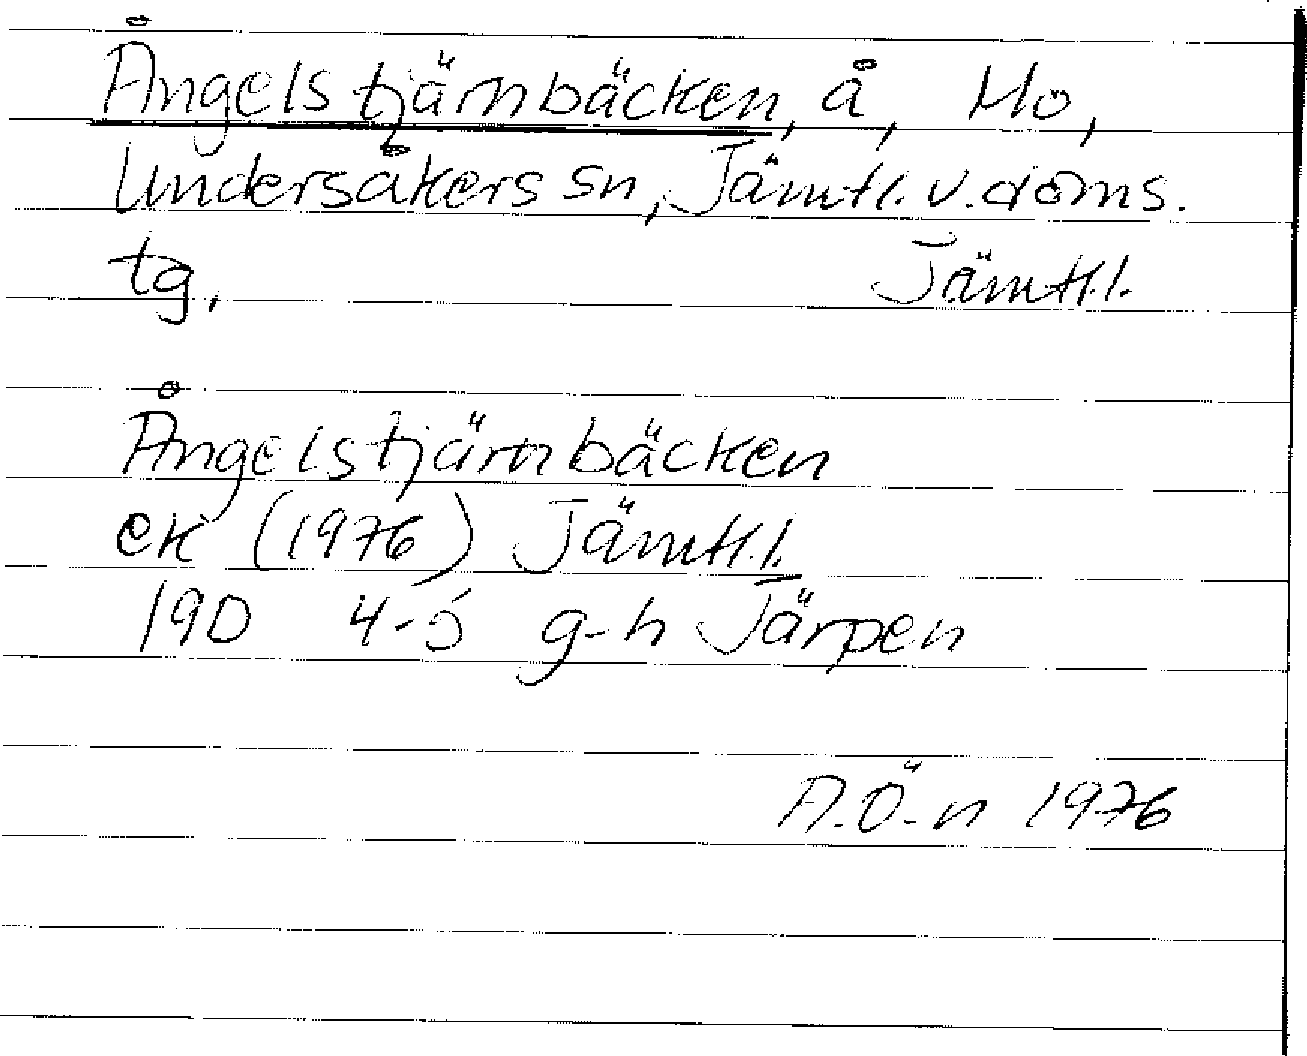 Ångelstjärnbäcken, å, Mo,
Undersåkers sn, Jämtl. v. doms.
tg, Jämtl.l.
Ångelstjärnbäcken
ek (1976) Jämtl.l.
19D 4-5 g-h Järpen
A.Ö-n 1976